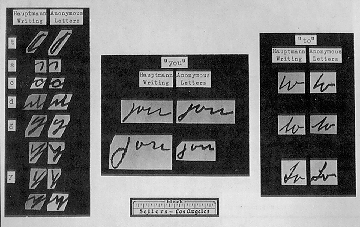 Hauptmann Writing Anonymous Letters
t
c
d
y
"you"
Hauptmann Writing Anonymous Letters
you you
you you
"to"
Hauptmann Writing Anonymous Letters
to to
to to
to to
Sellers - Los Angeles